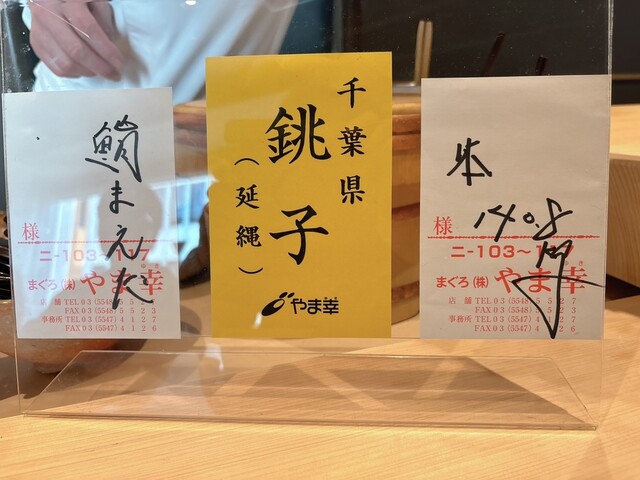 鮨まえだ
様
ニ-103~1 7
まぐろ(株)やま幸
店 舗 TEL 03 (5548) 5 5 2 7
FAX 03 (5548) 5 5 2 3
事務所 TEL 03 (5547) 4 1 2 7
FAX 03 (5547) 4 1 2 6
千葉県
銚子
(延縄)
やま幸
本
140.8
様
ニ-103~1 7
まぐろ(株)やま幸
店 舗 TEL 03 (5548) 5 5 2 7
FAX 03 (5548) 5 5 2 3
事務所 TEL 03 (5547) 4 1 2 7
FAX 03 (5547) 4 1 2 6